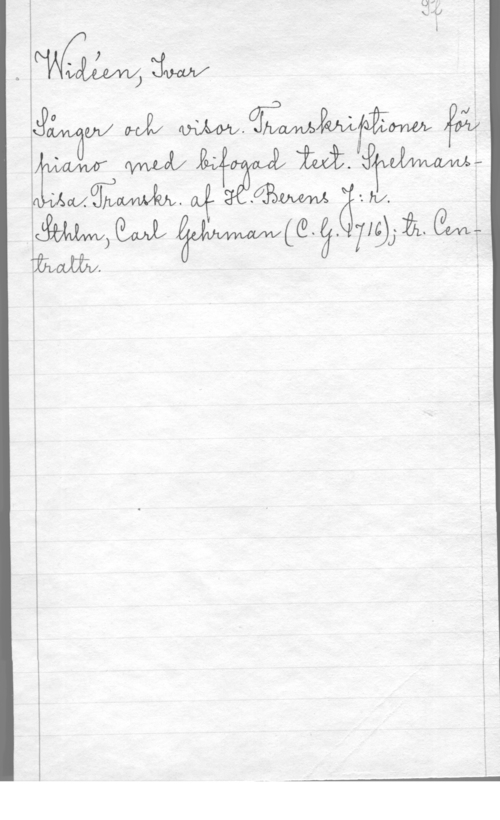 Widéen, Ivar
Sånger och visor. Transkriptioner för
piano med bifogad text. Spelmans-
visa. Transkr. af H. Berens J:r.
Sthlm, Carl Gehrman (C.G. 1716); tr. Cen-
traltr.